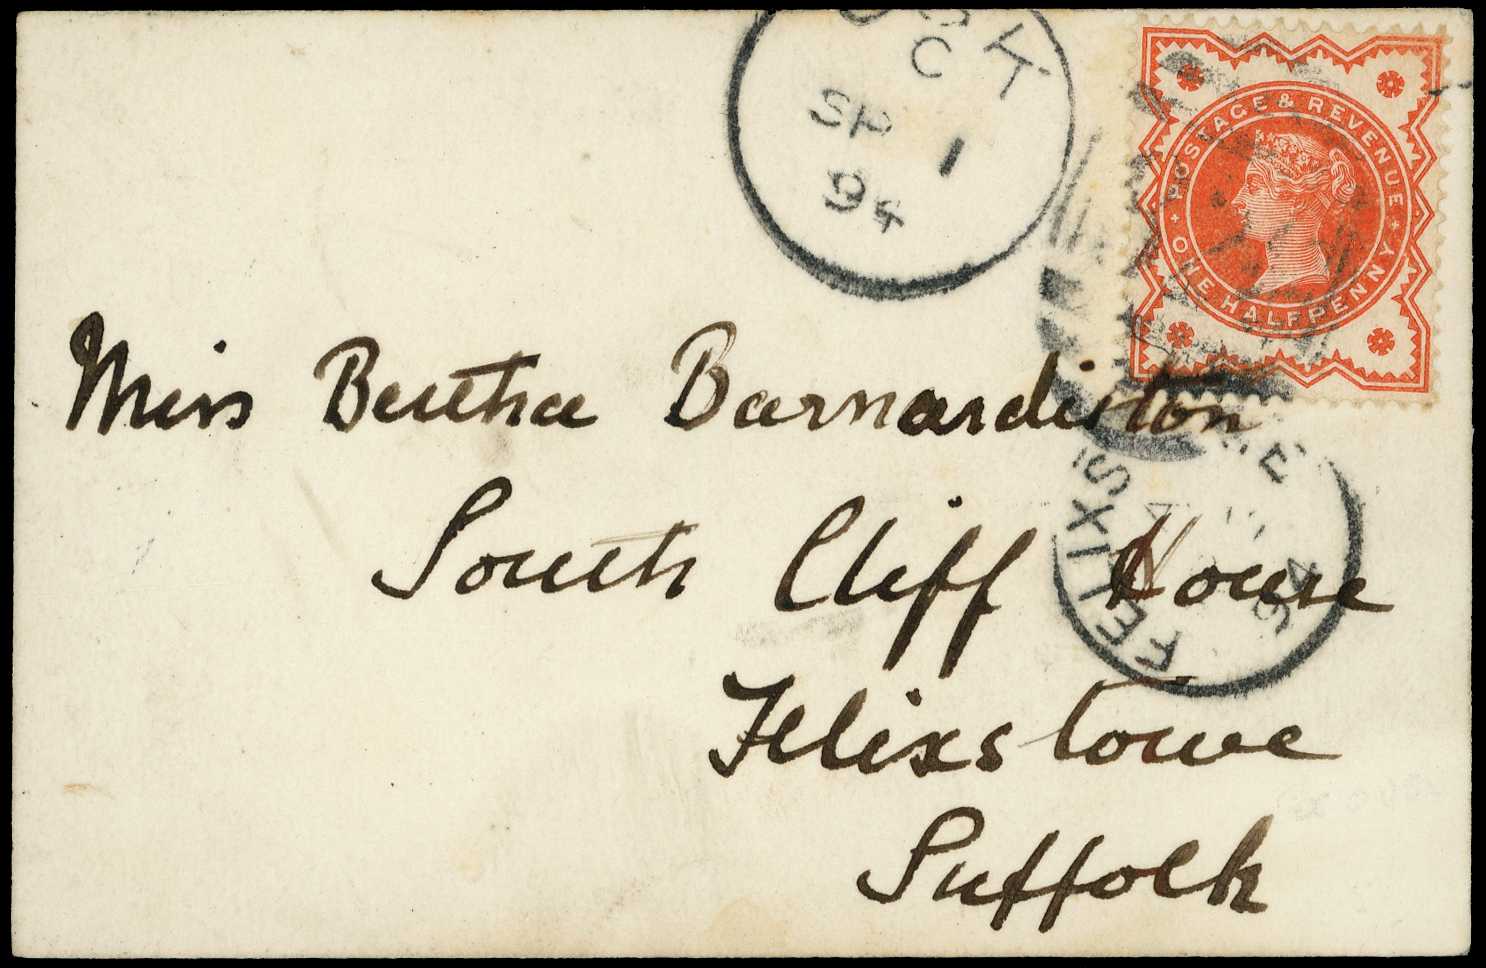 C
SP 1
94
POSTAGE & REVENUE
ONE HALFPENNY
Miss Bertha Barnardiston
South Cliff House
Felixstowe
Suffolk
94